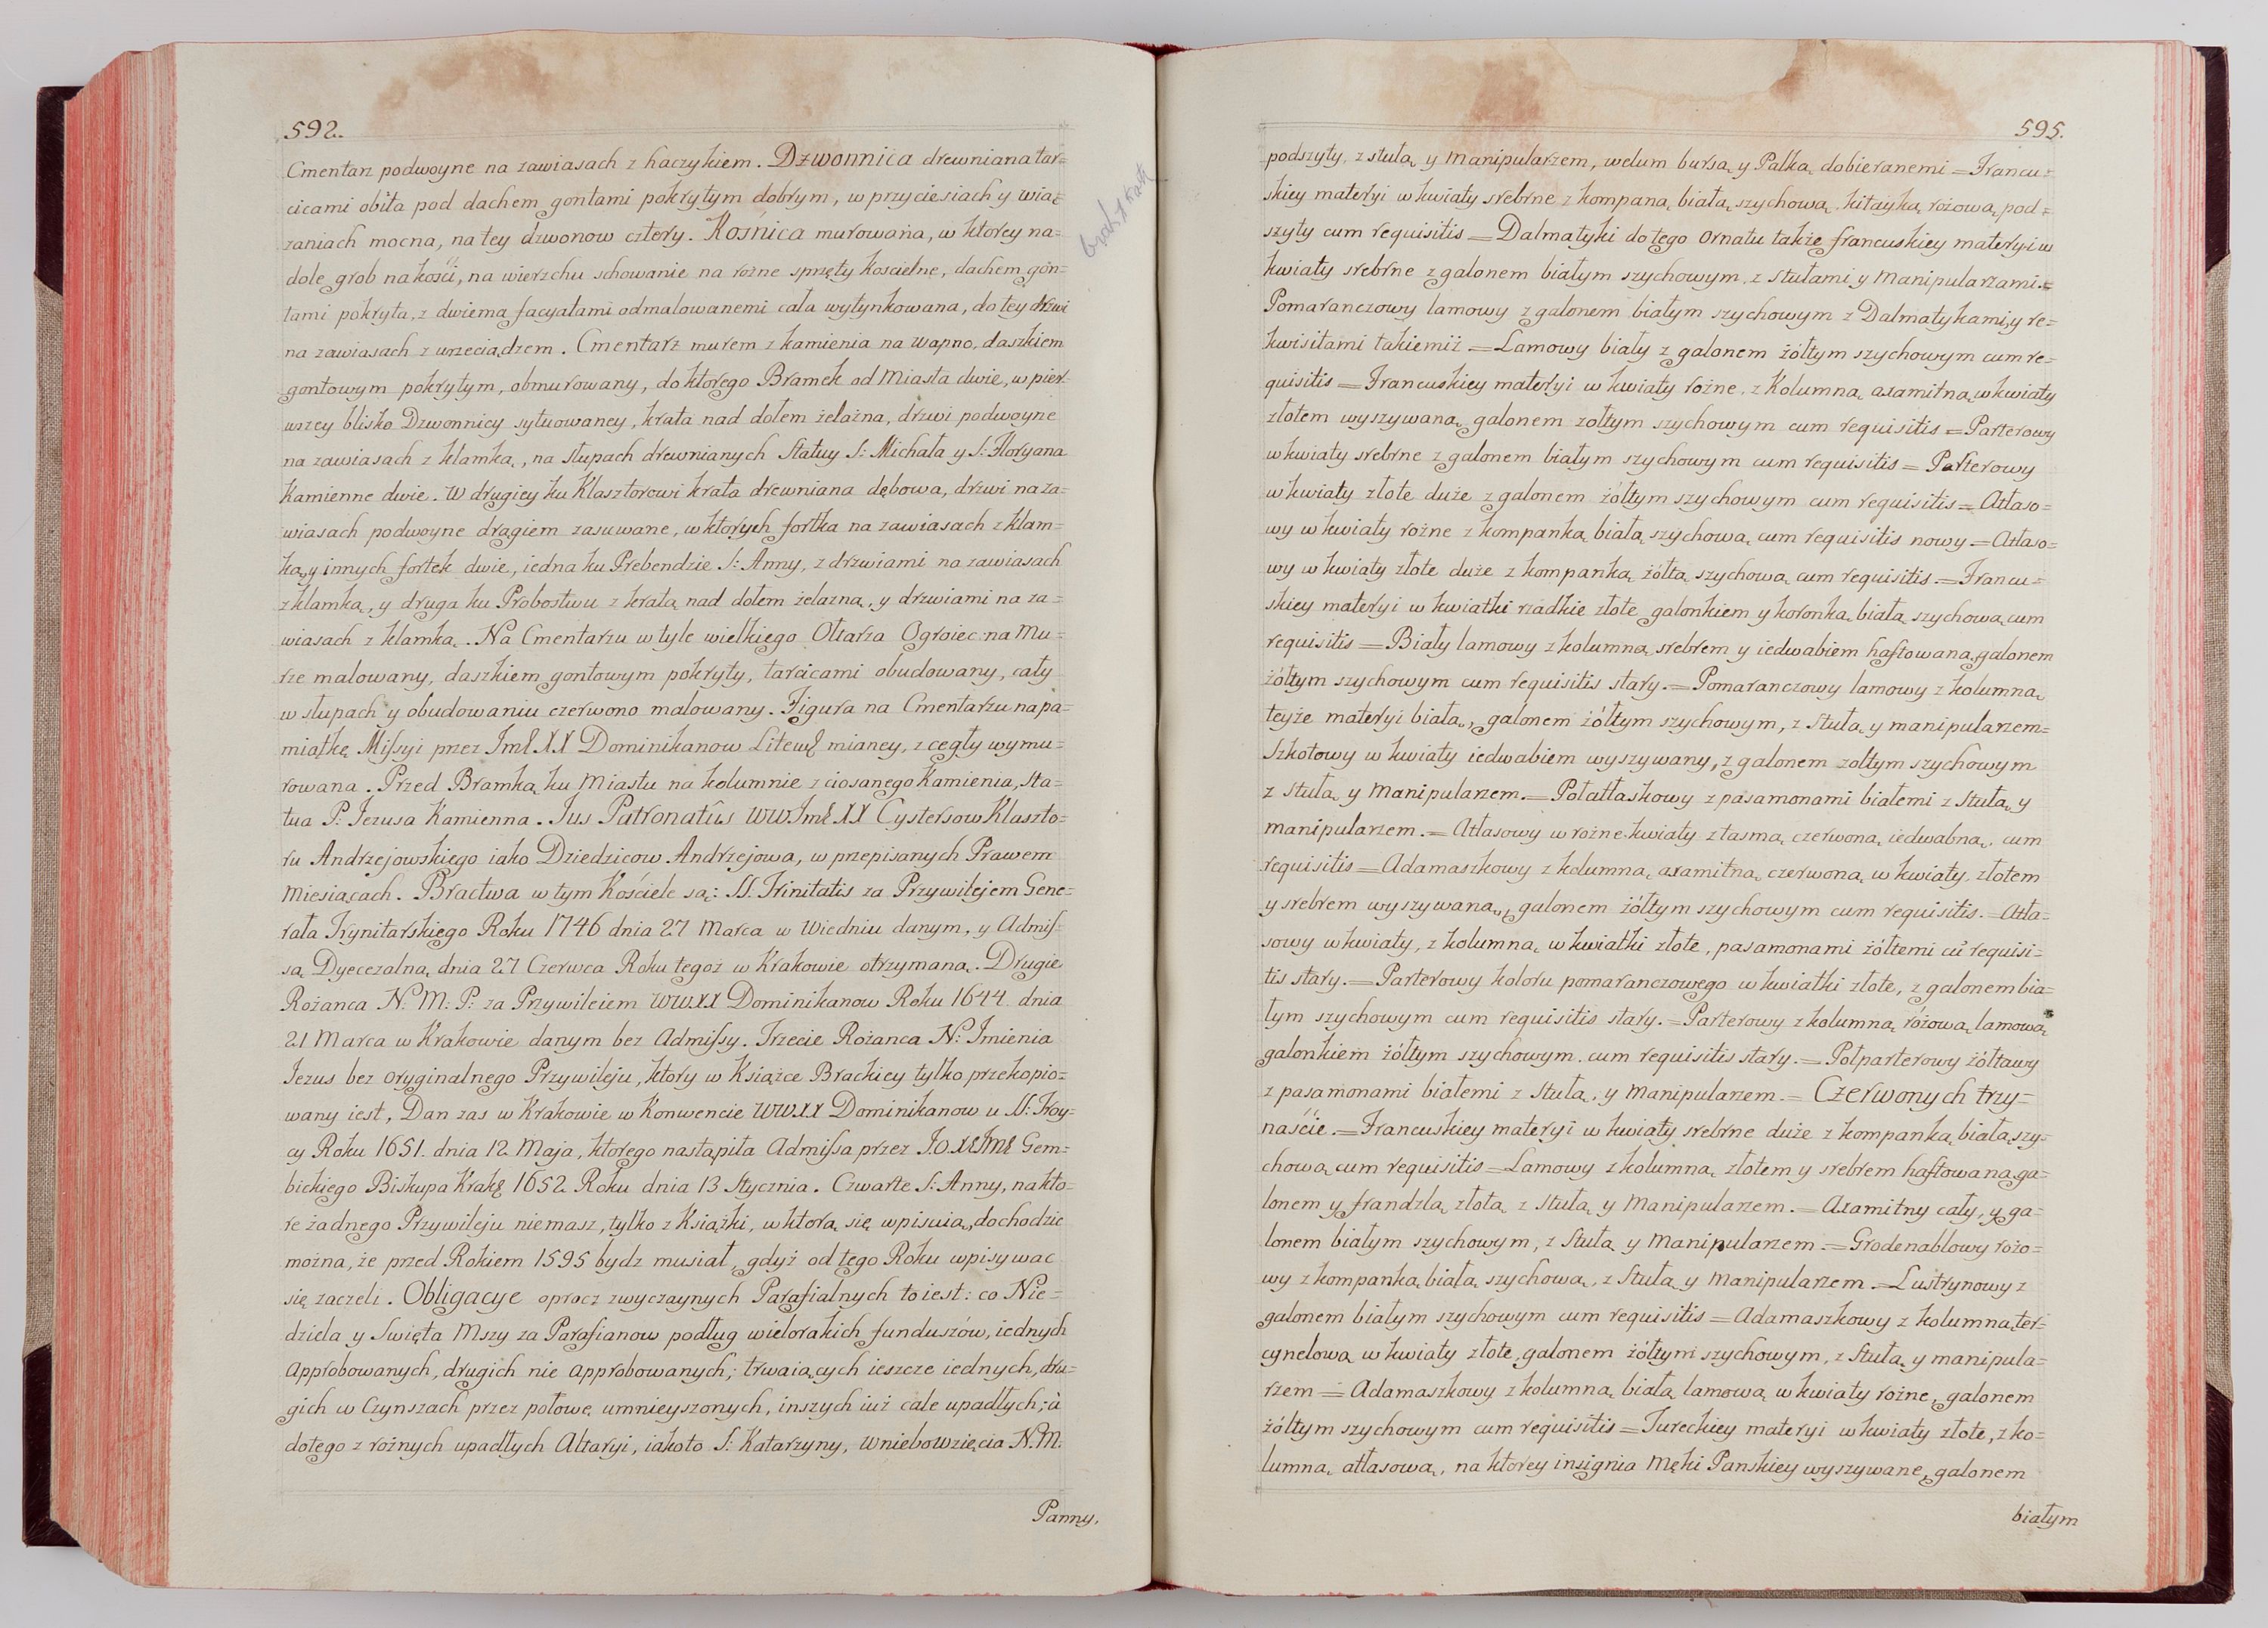 592.
Cmentarz podwoyne na zawiasach z haczykiem. Dzwonnica drewniana tar=
cicami obita pod dachem gontami pokrytym dobrym, w przyciesiach y wią=
zaniach mocna, na tey dzwonow cztery. Kośnica murowana, w ktorey na=
dole grob na kości, na wierzchu schowanie na rożne sprzęty kościelne, dachem gon=
tami pokryta, z dwiema facyatami odmalowanemi cała wytynkowana, do tey drzwi
na zawiasach z wrzeciądzem. Cmentarz murem z kamienia na wapno, daszkiem
gontowym pokrytym, obmurowany, do ktorego Bramek od Miasta dwie, w pier=
wszey blisko Dzwonnicy sytuowaney, krata nad dołem żelazna, drzwi podwoyne
na zawiasach z klamką, na słupach drewnianych Statuy S: Michała y S: Floryana
Kamienne dwie. W drugiey ku Klasztorowi krata drewniana dębowa, drzwi na za=
wiasach podwoyne drągiem zasuwane, w ktorych fortka na zawiasach z klam=
ką, y innych fortek dwie, iedna ku Prebendzie S: Anny, z drzwiami na zawiasach
z klamką, y druga ku Probostwu z kratą nad dołem żelazną, y drzwiami na za=
wiasach z klamką. Na Cmentarzu w tyle wielkiego Ołtarza Ogroiec na Mu=
rze malowany, daszkiem gontowym pokryty, tarcicami obudowany, cały
w słupach y obudowaniu czerwono malowany. Figura na Cmentarzu na pa=
miątkę Missyi przez Jmć XX Dominikanow Litew: mianey, z cegły wymu=
rowana. Przed Bramką ku Miastu na kolumnie z ciosanego Kamienia, Sta=
tua P: Jezusa Kamienna. Jus Patronatûs WW Jmć XX Cystersow Klaszto=
ru Andrzejowskiego iako Dziedzicow Andrzejowa, w przepisanych Prawem
Miesiącach. Bractwa w tym Kościele są: SS. Trinitatis za Przywilejem Gene=
rała Trynitarskiego Roku 1746 dnia 27 Marca w Wiedniu danym, y Admis=
są Dyecezalną dnia 27 Czerwca Roku tegoż w Krakowie otrzymaną. Drugie
Rożanca N. M: P: za Przywileiem WW.XX Dominikanow Roku 1644. dnia
21 Marca w Krakowie danym bez Admissy. Trzecie Rożanca N: Imienia
Jezus bez oryginalnego Przywileju, ktory w Książce Brackiey tylko przekopio=
wany iest, Dan zas w Krakowie w Konwencie WW.XX Dominikanow u SS: Troy=
cy Roku 1651. dnia 12 Maja, ktorego nastąpiła Admissa przez J.O.XcJmć Gem=
bickiego Biskupa Krak: 1652 Roku dnia 13 Stycznia. Czwarte S: Anny, na kto=
re żadnego Przywileju niemasz, tylko z Książki, w ktorą się wpisuią, dochodzic
można, że przed Rokiem 1595 bydz musiał, gdyż od tego Roku wpisywac
się zaczeli. Obligacye oprocz zwyczaynych Parafialnych to iest: co Nie=
dziela y Swięta Mszy za Parafianow podług wielorakich funduszów, iednych
approbowanych, drugich nie approbowanych; trwaiących ieszcze iednych, dru=
gich w Czynszach przez połowę umnieyszonych, inszych iuż cale upadłych; à
do tego z rożnych upadłych Altaryi, iako to S: Katarzyny, Wniebowzięcia N. M:
Panny,
595.
podszyty, z stułą y manipularzem, welum bursą y Palką dobieranemi = Francu=
skiey materyi w kwiaty srebrne z kompaną białą szychową, kitayką rożową pod=
szyty cum requisitis = Dalmatyki do tego Ornatu także francuskiey materyi w
kwiaty srebrne z galonem białym szychowym, z stułami y manipularzami =
Pomaranczowy lamowy z galonem białym szychowym z Dalmatykami, y re=
kwisitami takiemiż = Lamowy biały z galonem żółtym szychowym cum re=
quisitis = Francuskiey materyi w kwiaty rożne, z Kolumną axamitną w kwiaty
złotem wyszywaną galonem żołtym szychowym cum requisitis = Parterowy
w kwiaty srebrne z galonem białym szychowym cum requisitis = Parterowy
w kwiaty złote duże z galonem żółtym szychowym cum requisitis = Atłaso=
wy w kwiaty rożne z kompanką białą szychową cum requisitis nowy = Atłaso=
wy w kwiaty złote duże z kompanką żółtą szychową cum requisitis. = Francu=
skiey materyi w kwiatki rzadkie złote galonkiem y koronką białą szychową cum
requisitis = Biały lamowy z kolumną srebrem y iedwabiem haftowaną galonem
żółtym szychowym cum requisitis stary. = Pomaranczowy lamowy z kolumną
teyże materyi białą, galonem żółtym szychowym, z Stułą y manipularzem =
Szkotowy w kwiaty iedwabiem wyszywany, z galonem żołtym szychowym
z Stułą y Manipularzem. = Połatłaskowy z pasamonami białemi z Stułą y
manipularzem. = Atłasowy w rożne kwiaty z tasmą czerwoną iedwabną, cum
requisitis = Adamaszkowy z kolumną axamitną czerwoną w kwiaty złotem
y srebrem wyszywaną, galonem żółtym szychowym cum requisitis. = Atła=
sowy w kwiaty, z kolumną w kwiatki złote, pasamonami żółtemi cū requisi=
tis stary. = Parterowy koloru pomaranczowego w kwiatki złote, z galonem bia=
łym szychowym cum requisitis stary. = Parterowy z kolumną różową lamową
galonkiem żółtym szychowym cum requisitis stary. = Połparterowy żółtawy
z pasamonami białemi z Stułą, y Manipularzem. = Czerwonych trzy=
naście. = Francuskiey materyi w kwiaty srebrne duże z kompanką białą szy=
chową cum requisitis = Lamowy z kolumną złotem y srebrem haftowaną ga=
lonem y frandzlą złotą z Stułą y Manipularzem. = Axamitny cały, y ga=
lonem białym szychowym, z Stułą y Manipularzem = Grodenablowy rożo=
wy z kompanką białą szychową, z Stułą y Manipularzem. = Lustrynowy z
galonem białym szychowym cum requisitis = Adamaszkowy z kolumną ter=
cynelową w kwiaty złote, galonem żółtym szychowym, z Stułą y manipula=
rzem = Adamaszkowy z kolumną białą lamową w kwiaty rożne, galonem
żółtym szychowym cum requisitis = Tureckiey materyi w kwiaty złote, z ko=
lumną atłasową, na ktorey insignia Męki Panskiey wyszywane, galonem
białym